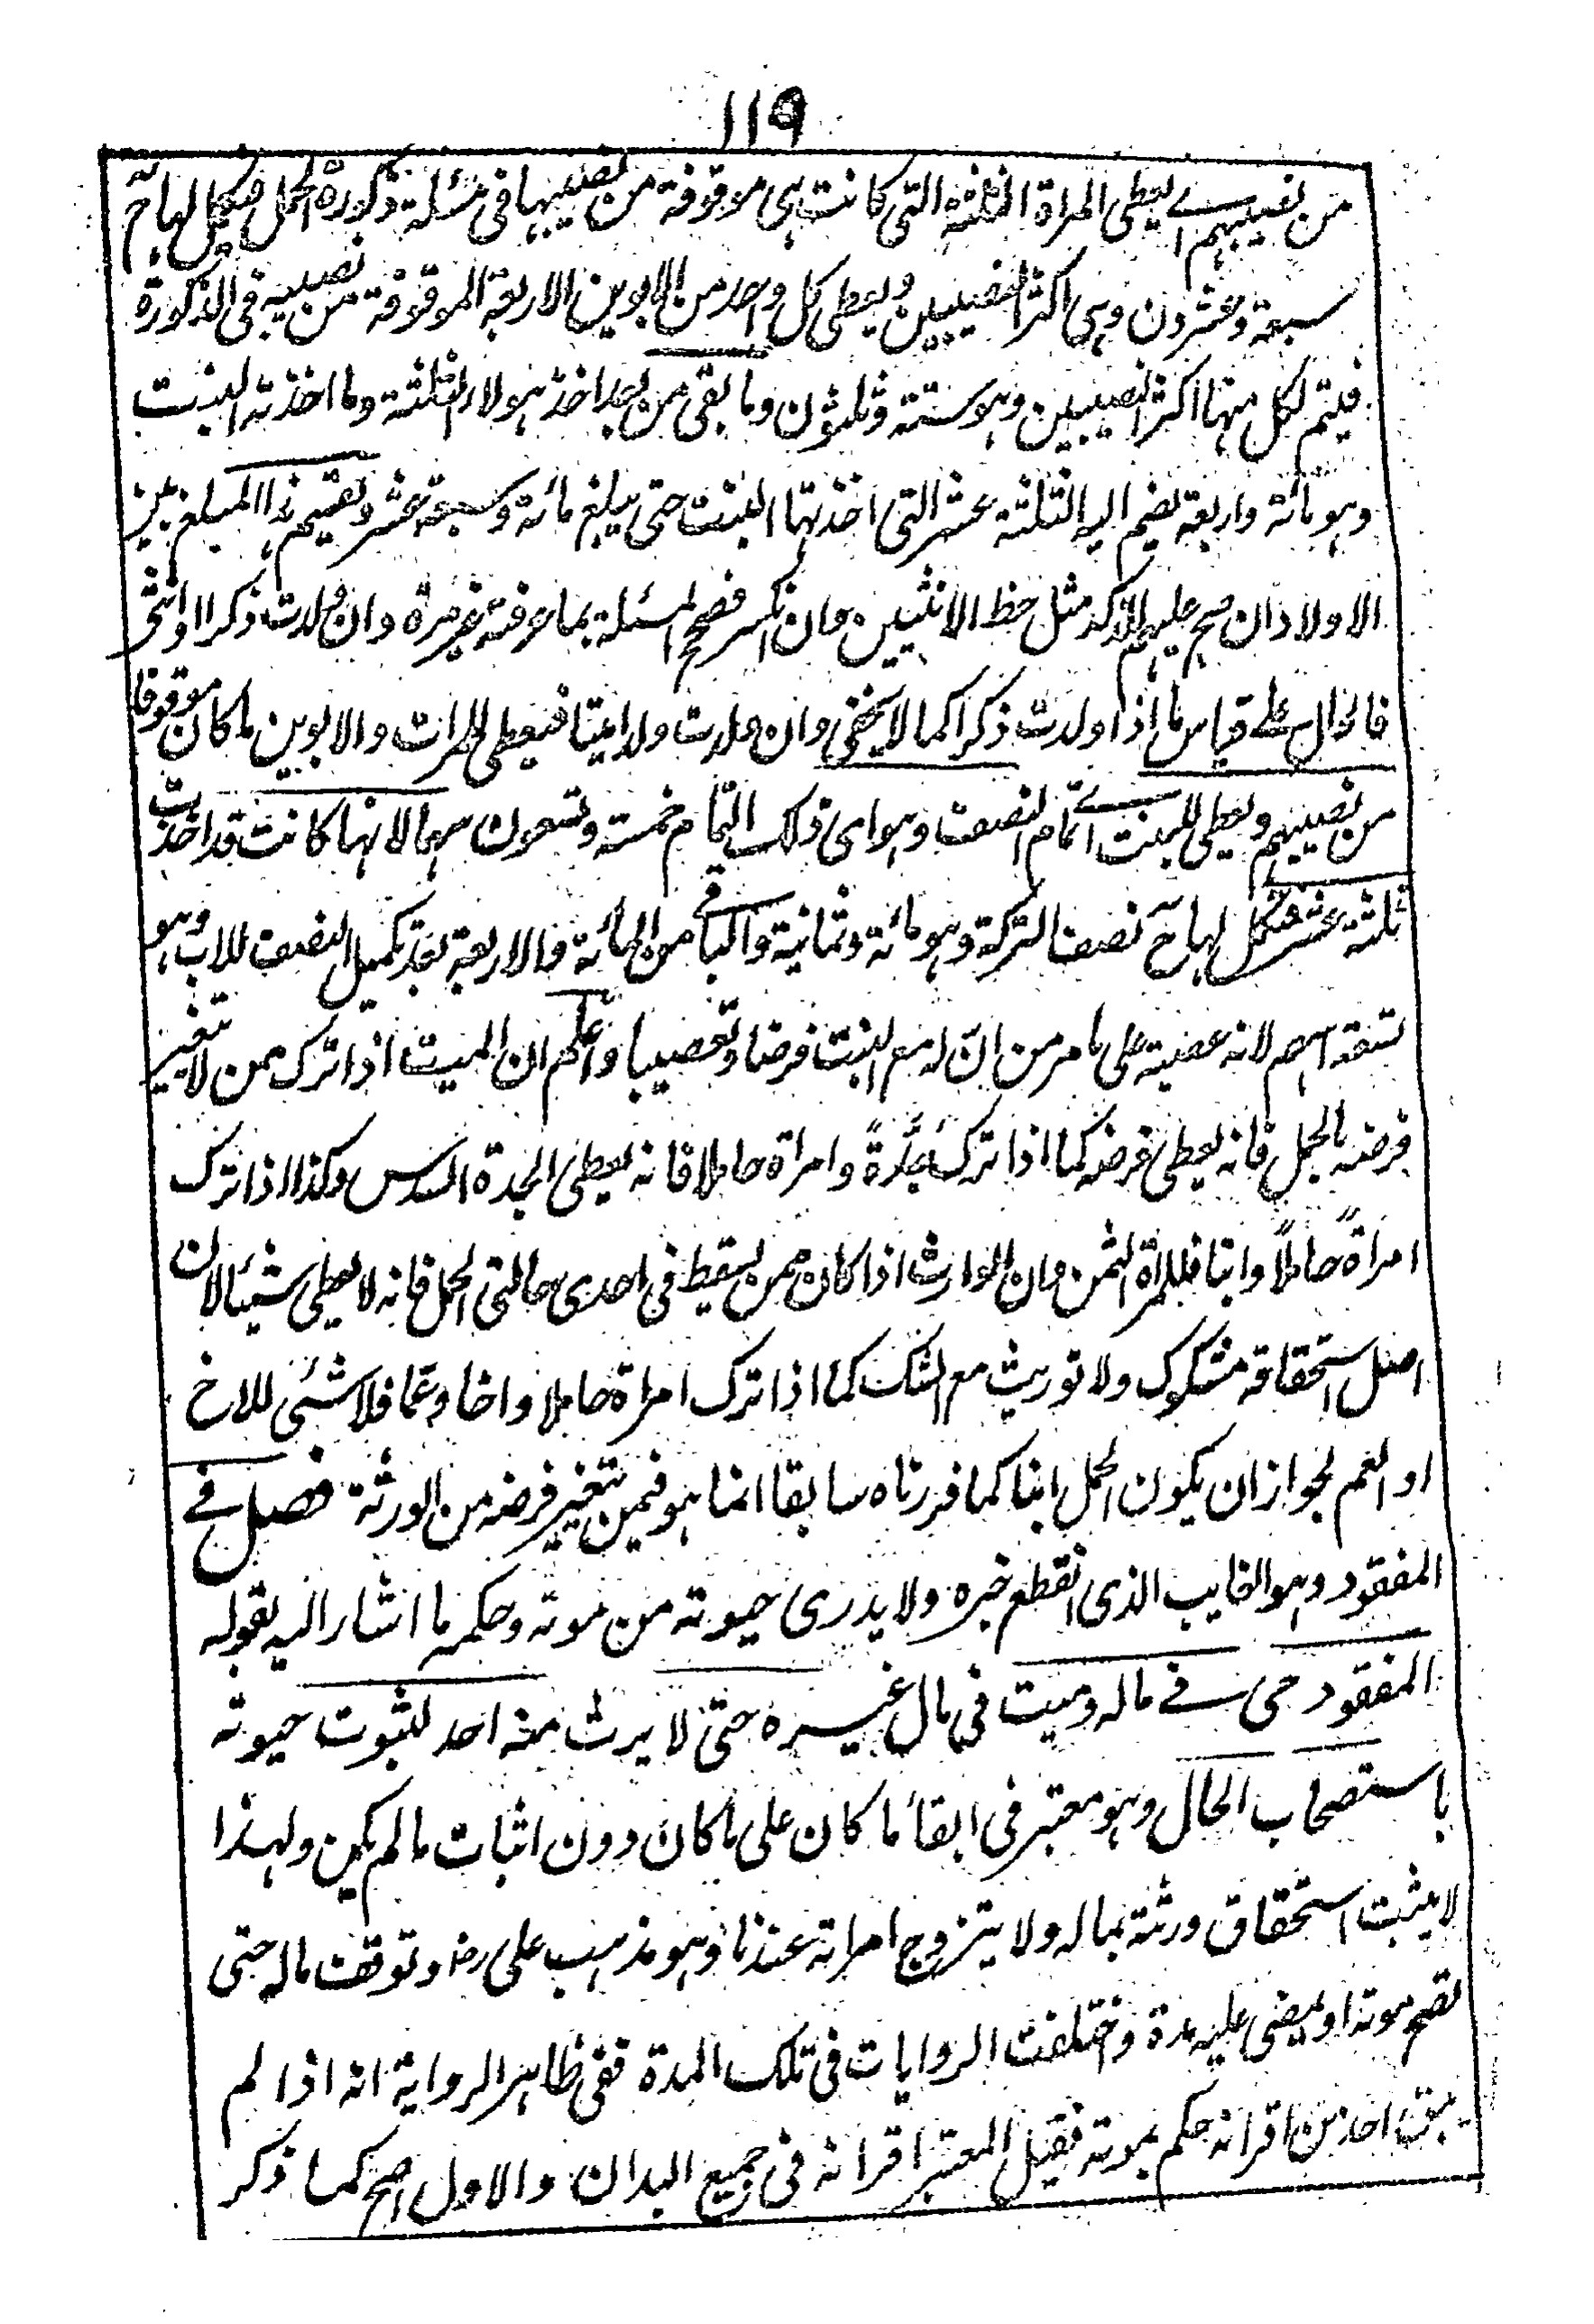 ١١٩
من نصيبهم اے يعطى المراة الثلثة التى كانت هى موقوفة من نصيبها فى مسئلة ذكورة الحمل فيكمل لها ح
سبعة وعشرون وهى اكثر النصيبين ويعطى كل واحد من الابوين الاربعة الموقوفة من نصيبيه فى الذكورة
فيتم لكل منها اكثر النصيبين وهو ستة وثلثون وما بقى من بعد اخذ هولاء الثلثة وما اخذته البنت
وهو مائة واربعة يضم اليه الثلثة عشر التى اخذتها البنت حتى يبلغ مائة وسبعة عشر ويقسم هذا المبلغ بين
الاولاد ان صح عليهم للذكر مثل حظ الانثيين وان انكسر فصحح المسئلة بما عرفته غير مرة وان ولدت ذكرا وانثى
فالحال على قياس ما اذا ولدت ذكرا كما لا يخفى وان ولدت ولدا ميتا فيعطى للمرات والابوين ما كان موقوفا
من نصيبهم ويعطى للبنت اے تمام النصف وهو اى ذلك التمام خمسة وتسعون سهما لانها كانت قد اخذت
ثلثة عشر فيكمل لها ح نصف التركة وهو مائة وثمانية والباقے من المائة والاربعة بعد تكميل النصف للاب وهو
تسعة اسهم لانه عصبة على ما مر من ان له مع البنت فرضا وتعصيبا واعلم ان الميت اذا ترك ممن لا تغير
فرضه بالحمل فانه يعطى فرضه كما اذا ترك جدةً وامراة حاملا فانه يعطى الجدة السدس وكذا اذا ترك
امراةً حاملاً وابنا فللمراة الثمن وان الوارث اذا كان ممن يسقط فى احدى حالتى الحمل فانه لا يعطى شيئا لان
اصل استحقاقه مشكوك ولا توريث مع الشك كما اذا ترك امراة حاملا واخا وعما فلا شئى للاخ
او العم لجواز ان يكون الحمل ابنا كما قررناه سابقا انما هو فيمن يتغير فرضه من الورثة فصل فے
المفقود وهو الغايب الذى انقطع خبره ولا يدرى حيوته من موته وحكمه ما اشار اليه بقوله
المفقود حى فے ماله وميت فى مال غيره حتى لا يرث منه احد لثبوت حيوته
باستصحاب الحال وهو معتبر فى ابقاء ما كان على ما كان دون اثبات ما لم يكن ولهذا
لا يثبت استحقاق ورثته بماله ولا يتزوج امراته عندنا وهو مذهب على رض وتوقف ماله حتى
يصح موته او يمضى عليه مدة واختلفت الروايات فى تلك المدة ففى ظاهر الرواية انه اذا لم
يبق احد من اقرانه حكم بموته فقيل المعتبر اقرانه فى جميع البدان والاول اصح كما ذكر